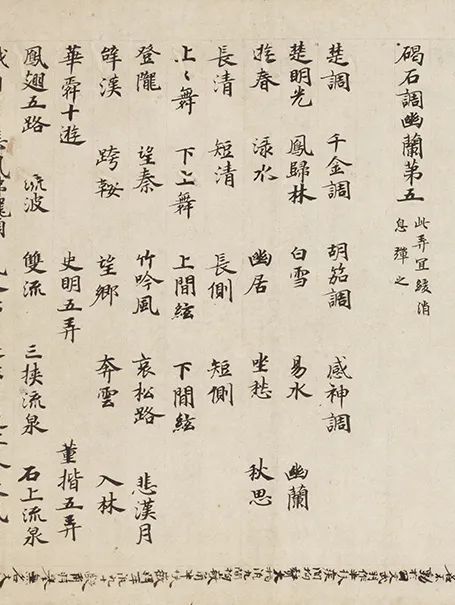 碣石調幽蘭第五
此弄宜緩消
息彈之
楚調 千金調 胡笳調 感神調
楚明光 鳳歸林 白雪 易水 幽蘭
遊春 淥水 幽居 坐愁 秋思
長清 短清 長側 短側
上〻舞 下上舞 上間絃 下間絃
登隴 望秦 竹吟風 哀松路 悲漢月
辝漢 跨鞍 望鄉 奔雲 入林
華舜十遊 史明五弄 董揩五弄
鳳翅五路 流波 雙流 三挾流泉 石上流泉